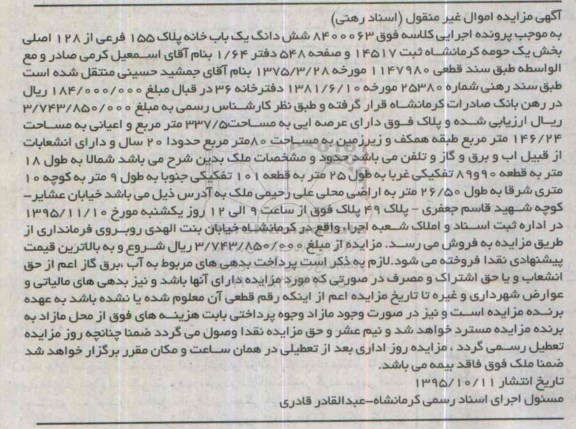 آگهی مزایده اموال غیر منقول (اسناد رهنی)
به موجب پرونده اجرایی کلاسه فوق ۸۴۰۰۰۶۳ شش دانگ یک باب خانه پلاک ۱۵۵ فرعی از ۱۲۸ اصلی
بخش یک حومه کرمانشاه ثبت ۱۴۵۱۷ و صفحه ۵۴۸ دفتر ۱/۶۴ بنام آقای اسمعیل کرمی صادر و مع
الواسطه طبق سند قطعی ۱۱۴۷۹۸۰ مورخه ۱۳۷۵/۳/۲۸ بنام آقای جمشید حسینی منتقل شده است
طبق سند رهنی شماره ۲۵۳۸۰ مورخه ۱۳۸۱/۶/۱۰ دفترخانه ۳۶ در قبال مبلغ ۱۸۴/۰۰۰/۰۰۰ ریال
در رهن بانک صادرات کرمانشاه قرار گرفته و طبق نظر کارشناس رسمی به مبلغ ۳/۷۴۳/۸۵۰/۰۰۰
ریال ارزیابی شده و پلاک فوق دارای عرصه ایی به مساحت۳۳۷/۵ متر مربع و اعیانی به مساحت
۱۴۶/۲۴ متر مربع طبقه همکف و زیرزمین به مساحت ۸۰متر مربع حدودا ۲۰ سال و دارای انشعابات
از قبیل اب و برق و گاز و تلفن می باشد حدود و مشخصات ملک بدین شرح می باشد شمالا به طول ۱۸
متر به قطعه ۸۹و۹۰ تفکیکی غربا به طول ۲۵ متر به قطعه ۱۰۱ تفکیکی جنوبا به طول ۹ متر به کوچه ۱۰
متری شرقا به طول ۲۶/۵۰ متر به اراضی محلی علی رحیمی ملک به آدرس ذیل می باشد خیابان عشایر-
کوچه شهید قاسم جعفری - پلاک ۴۹ پلاک فوق از ساعت ۹ الی ۱۲ روز یکشنبه مورخ ۱۳۹۵/۱۱/۱۰
در اداره ثبت اسناد و املاک شعبه اجراء واقع در کرمانشاه خیابان بنت الهدی روبروی فرمانداری از
طریق مزایده به فروش می رسد. مزایده از مبلغ ۳/۷۴۳/۸۵۰/۰۰۰ ریال شروع و به بالاترین قیمت
پیشنهادی نقدا فروخته می شود.لازم به ذکر است پرداخت بدهی های مربوط به آب ،برق گاز اعم از حق
انشعاب و یا حق اشتراک و مصرف در صورتی که مورد مزایده دارای آنها باشد و نیز بدهی های مالیاتی و
عوارض شهرداری و غیره تا تاریخ مزایده اعم از اینکه رقم قطعی آن معلوم شده یا نشده باشد به عهده
برنده مزایده است و نیز در صورت وجود مازاد وجوه پرداختی بابت هزینه های فوق از محل مازاد به
برنده مزایده مسترد خواهد شد و نیم عشر و حق مزایده نقدا وصول می گردد ضمنا چنانچه روز مزایده
تعطیل رسمی گردد ، مزایده روز اداری بعد از تعطیلی در همان ساعت و مکان مقرر برگزار خواهد شد
ضمنا ملک فوق فاقد بیمه می باشد.
تاریخ انتشار ۱۳۹۵/۱۰/۱۱
مسئول اجرای اسناد رسمی کرمانشاه-عبدالقادر قادری